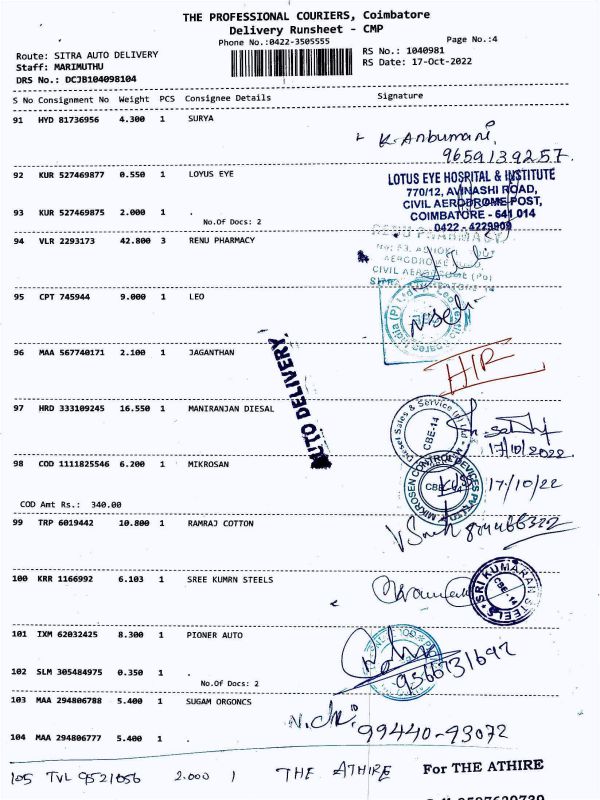 THE PROFESSIONAL COURIERS, Coimbatore
Delivery Runsheet - CMP
Phone No.:0422-3505555
Page No.:4
Route: SITRA AUTO DELIVERY
RS No.: 1040981
Staff: MARIMUTHU
RS Date: 17-Oct-2022
DRS No.: DCJB104098104
S No Consignment No Weight PCS Consignee Details Signature
91 HYD 81736956 4.300 1 SURYA
K. Anbumani,
9659139257.
92 KUR 527469877 0.550 1 LOYUS EYE
LOTUS EYE HOSPITAL & INSTITUTE
770/12, AVINASHI ROAD,
CIVIL AERODROME POST,
COIMBATORE - 641 014
0422 - 4229909
93 KUR 527469875 2.000 1 .
No.Of Docs: 2
94 VLR 2293173 42.800 3 RENU PHARMACY
RENU PHARMACY
CIVIL AERODROME (Po)
95 CPT 745944 9.000 1 LEO
96 MAA 567740171 2.100 1 JAGANTHAN
AUTO DELIVERY
97 HRD 333109245 16.550 1 MANIRANJAN DIESAL
Diesel Sales & Service (P) Ltd
CBE-14
17/10/2022
98 COD 1111825546 6.200 1 MIKROSAN
MIKROSEN CONTROL DEVICES PVT LTD
CBE-14
17/10/22
COD Amt Rs.: 340.00
99 TRP 6019442 10.800 1 RAMRAJ COTTON
100 KRR 1166992 6.103 1 SREE KUMRN STEELS
SRI KUMARAN STEELS
CBE-14
101 IXM 62032425 8.300 1 PIONER AUTO
9566731692
102 SLM 305484975 0.350 1 .
No.Of Docs: 2
103 MAA 294806788 5.400 1 SUGAM ORGONCS
99440-93072
104 MAA 294806777 5.400 1 .
105 TVL 9521056 2.000 1 THE ATHIRE
For THE ATHIRE